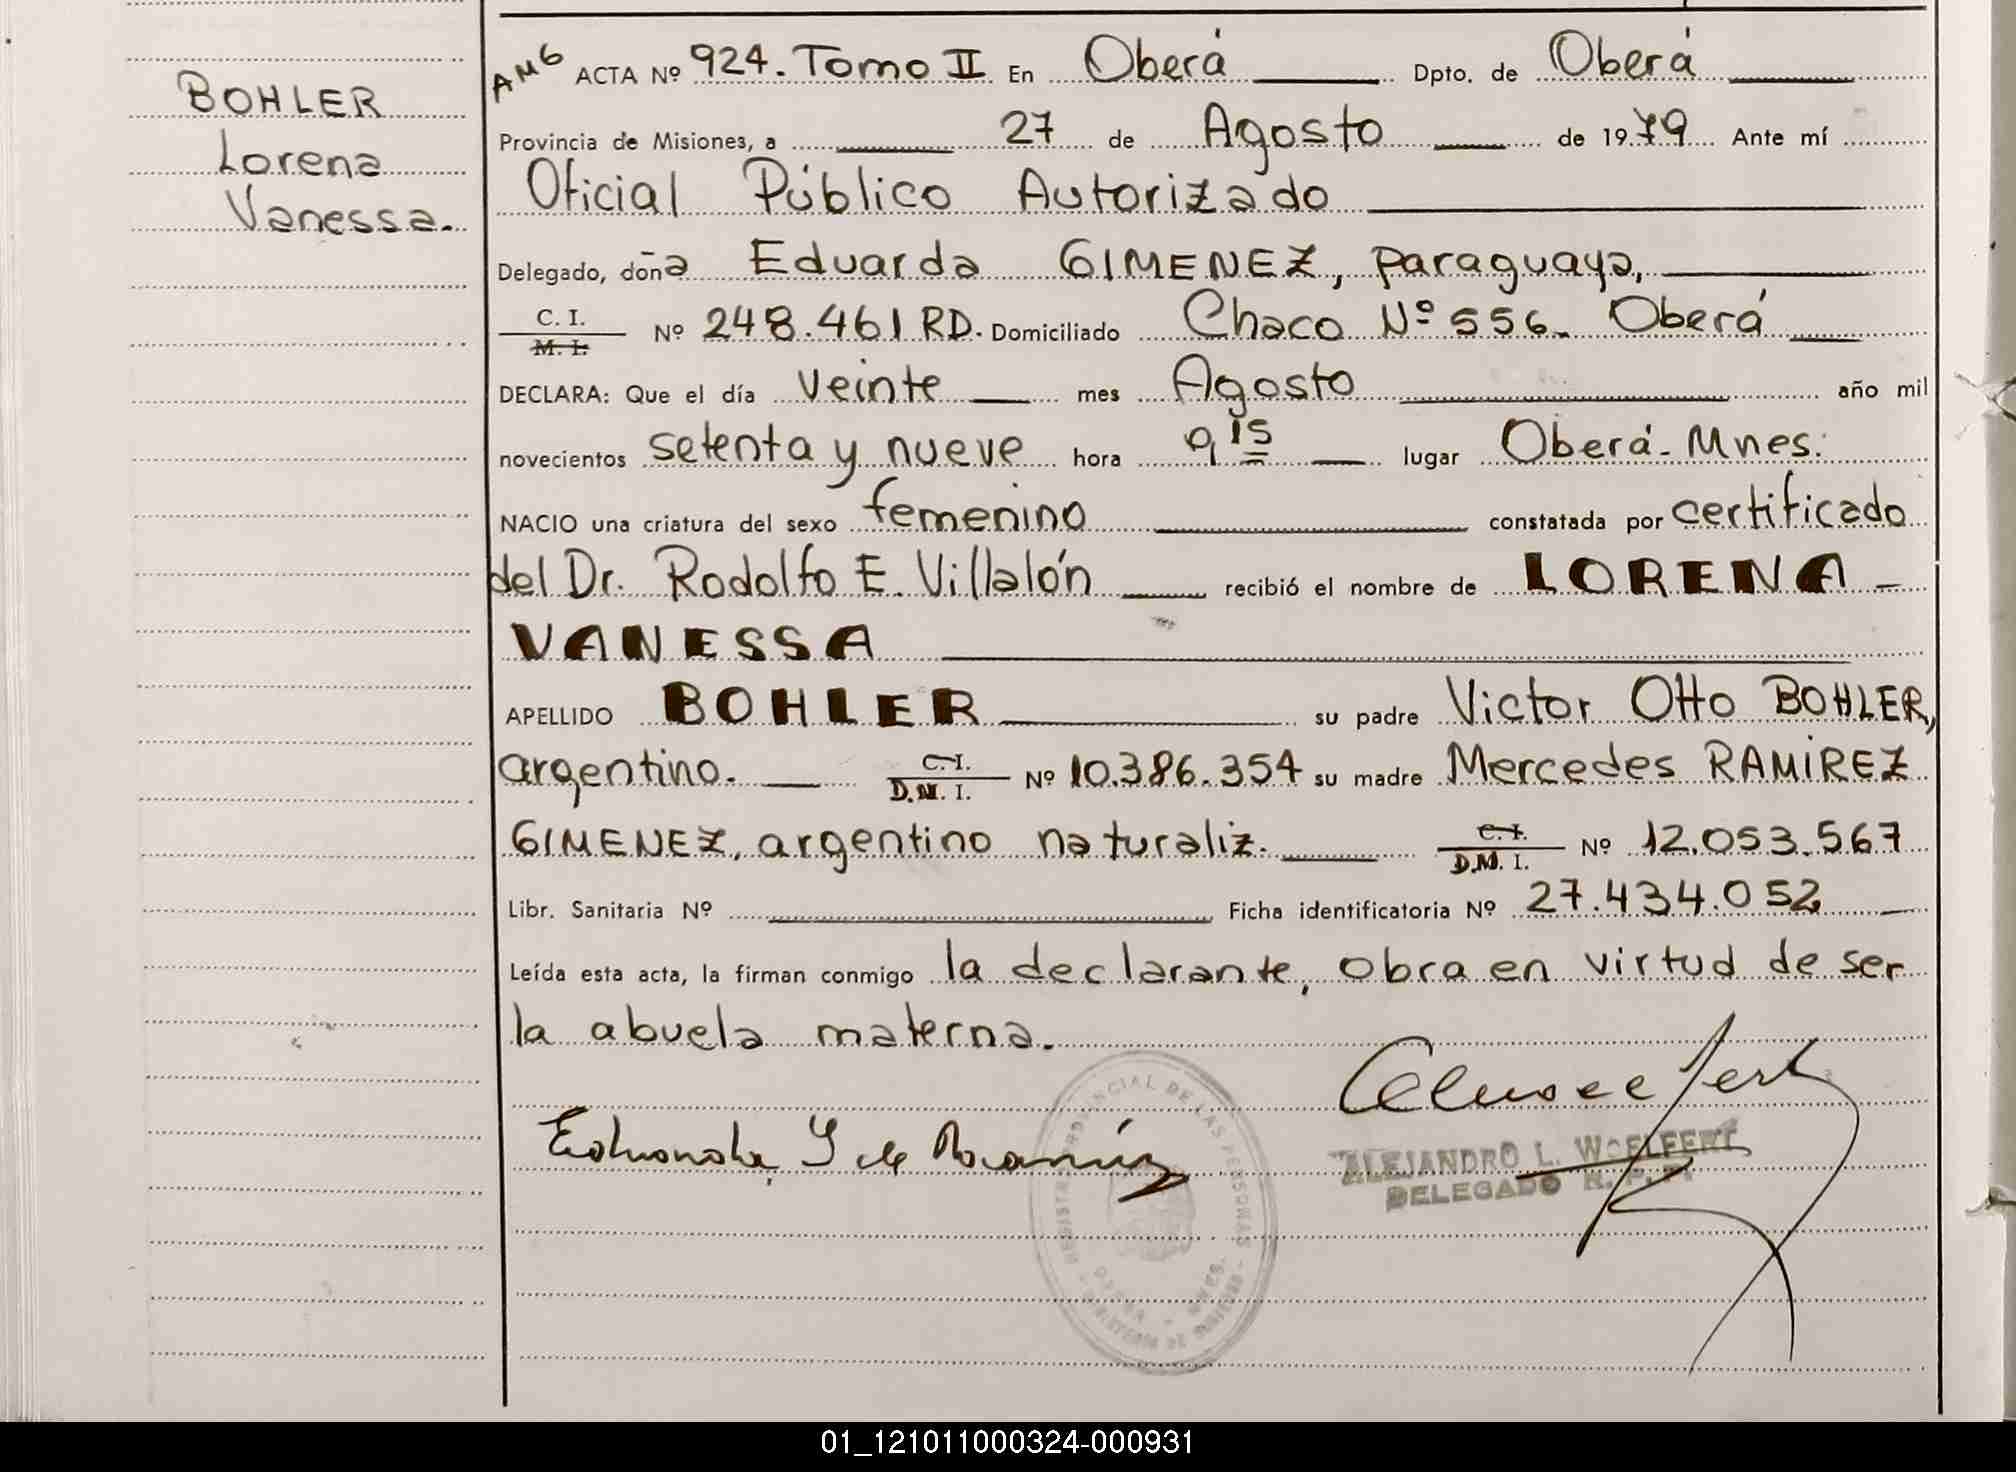 BOHLER
Lorena
Vanessa.
AMG ACTA Nº 924. Tomo II En Oberá Dpto. de Oberá
Provincia de Misiones, a 27 de Agosto de 1979 Ante mí
Oficial Público Autorizado
Delegado, doña Eduarda GIMENEZ, paraguaya,
C. I.
M. I. Nº 248.461 RD. Domiciliado Chaco Nº 556. Oberá
DECLARA: Que el día veinte mes Agosto año mil
novecientos setenta y nueve hora 9 15 lugar Oberá - Mnes.
NACIO una criatura del sexo femenino constatada por certificado
del Dr. Rodolfo E. Villalón recibió el nombre de LORENA
VANESSA
APELLIDO BOHLER su padre Victor Otto BOHLER,
argentino. C. I. D.N. I. Nº 10.386.354 su madre Mercedes RAMIREZ
GIMENEZ, argentino naturaliz. C. I. D.M. I. Nº 12.053.567
Libr. Sanitaria Nº Ficha identificatoria Nº 27.434.052
Leída esta acta, la firman conmigo la declarante, obra en virtud de ser
la abuela materna.
REGISTRO PROVINCIAL DE LAS PERSONAS
ALEJANDRO L. WOELFERT
DELEGADO R. P. P.
01_121011000324-000931